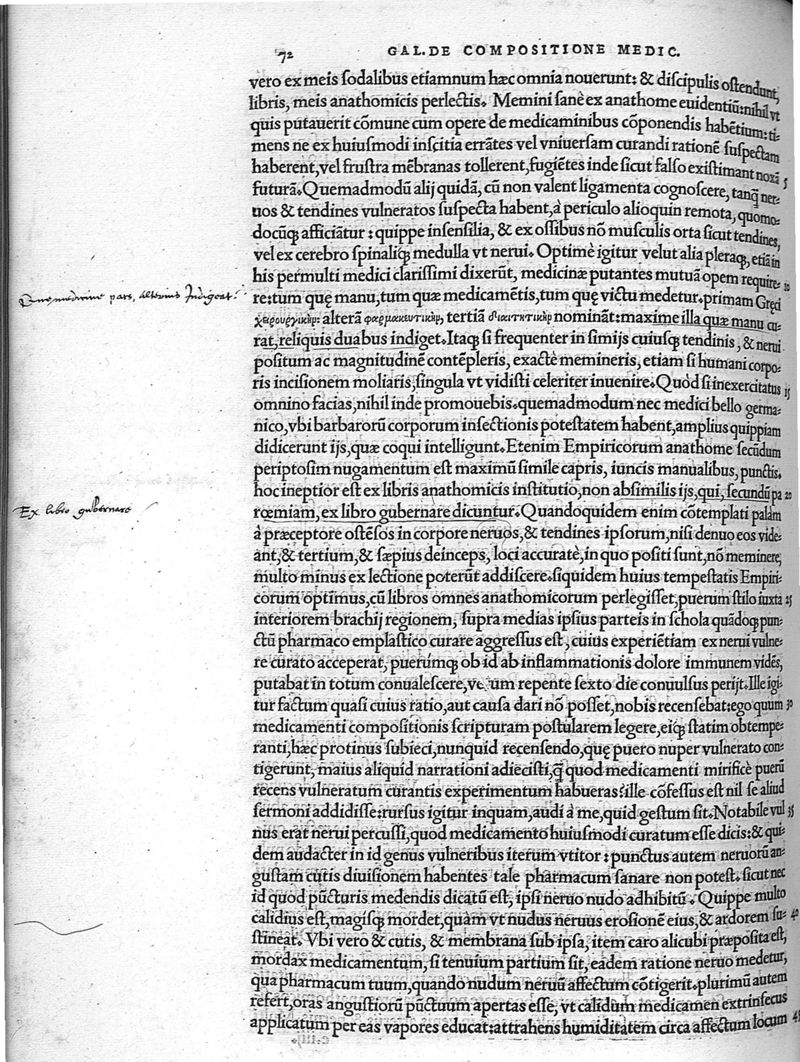 72
GAL. DE COMPOSITIONE MEDIC.
vero ex meis sodalibus etiamnum hæc omnia nouerunt: & discipulis ostendunt,
libris, meis anathomicis perlectis. Memini sanè ex anathome euidentiū: nihil vt
quis putauerit cōmune cum opere de medicaminibus cōponendis habētium: ti-
mens ne ex huiusmodi inscitia errātes vel vniuersam curandi rationē suspectam
haberent, vel frustra mēbranas tollerent, fugiētes inde sicut falso existimant noxā 5
futurā. Quemadmodū alij quidā, cū non valent ligamenta cognoscere, tanq̄ ner-
uos & tendines vulneratos suspecta habent, à periculo alioquin remota, quomo-
docūq; afficiātur: quippe insensilia, & ex ossibus nō musculis orta sicut tendines,
vel ex cerebro spinaliq; medulla vt nerui. Optimè igitur velut alia pleraq;, etiā in
his permulti medici clarissimi dixerūt, medicinæ putantes mutuā opem require- 10
re: tum quę manu, tum quæ medicamētis, tum quę victu medetur. primam Gręci
χειρουργικὴν: alterā φαρμακευτικὴν, tertiā διαιτητικὴν nomināt: maxime illa quæ manu cu-
rat, reliquis duabus indiget. Itaq; si frequenter in simijs cuiusq; tendinis, & nerui
positum ac magnitudinē contēpleris, exactè memineris, etiam si humani corpo-
ris incisionem moliaris, singula vt vidisti celeriter inuenire. Quòd si inexercitatus 15
omnino facias, nihil inde promouebis. quemadmodum nec medici bello germa-
nico, vbi barbarorū corporum insectionis potestatem habent, amplius quippiam
didicerunt ijs, quæ coqui intelligunt. Etenim Empiricorum anathome secūdum
periptosim nugamentum est maximū simile capris, iuncis manualibus, punctis.
hoc ineptior est ex libris anathomicis institutio, non absimilis ijs, qui, secundū pa 20
rœmiam, ex libro gubernare dicuntur. Quandoquidem enim cōtemplati palàm
à præceptore ostēsos in corpore neruos, & tendines ipsorum, nisi denuo eos vide-
ant, & tertium, & sæpius deinceps, loci accuratè, in quo positi sunt, nō meminere,
multo minus ex lectione poterūt addiscere. siquidem huius tempestatis Empiri-
corum optimus, cū libros omnes anathomicorum perlegisset, puerum stilo iuxta 25
interiorem brachij regionem, supra medias ipsius parteis in schola quādoq; pun-
ctū pharmaco emplastico curare aggressus est, cuius experiētiam ex nerui vulne-
re curato acceperat, puerúmq; ob id ab inflammationis dolore immunem vidēs,
putabat in totum conualescere, verum repente sexto die conuulsus perijt. Ille igi-
tur factum quasi cuius ratio, aut causa dari nō posset, nobis recensebat: ego quum 30
medicamenti compositionis scripturam postularem legere, eiq; statim obtempe-
ranti, hæc protinus subieci, nunquid recensendo, quę puero nuper vulnerato con-
tigerunt, maius aliquid narrationi adiecisti, q̄ quod medicamenti mirificè puerū
recens vulneratum curantis experimentum habueras? ille cōfessus est nil se aliud
sermoni addidisse: rursus igitur inquam, audi à me, quid gestum sit. Notabile vul 35
nus erat nerui percussi, quod medicamento huiusmodi curatum esse dicis: & qui-
dem audacter in id genus vulneribus iterum vtitor: punctus autem neruorū an-
gustam cutis diuisionem habentes tale pharmacum sanare non potest. sicut nec
id quod pūcturis medendis dicatū est, ipsi neruo nudo adhibitū. Quippe multo
calidius est, magisq; mordet, quàm vt nudus neruus erosionē eius, & ardorem su- 40
stineat. Vbi vero & cutis, & membrana sub ipsa, item caro alicubi præposita est,
mordax medicamentum, si tenuium partium sit, eadem ratione neruo medetur,
qua pharmacum tuum, quando nudum neruū affectum cōtigerit. plurimū autem
refert, oras angustiorū pūctuum apertas esse, vt calidum medicamen extrinsecus
applicatum per eas vapores educat: attrahens humiditatem circa affectum locum 45
Ex libro gubernare